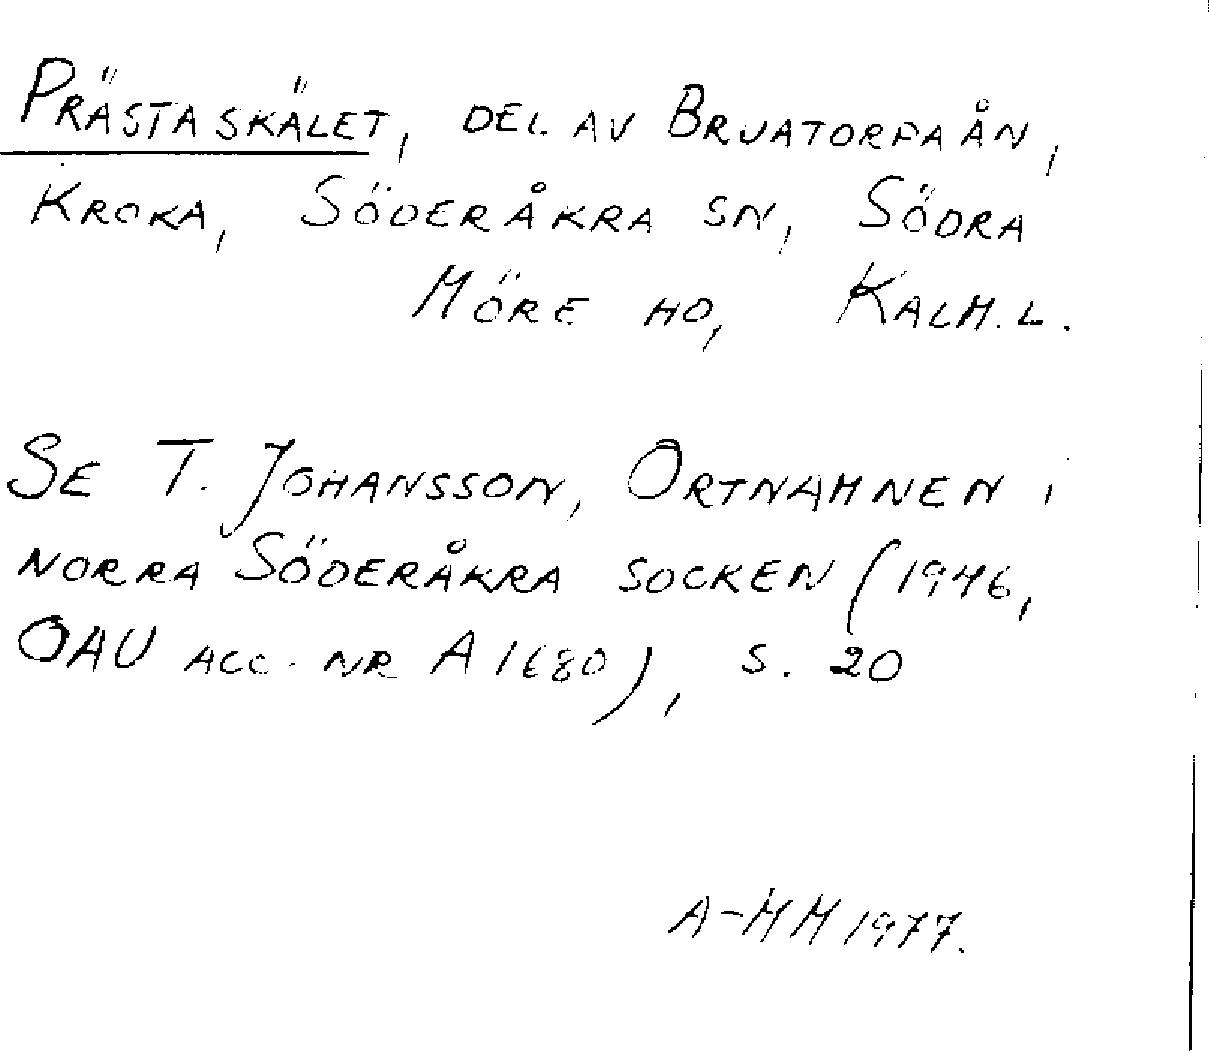 PRÄSTASKÄLET, DEL AV BRUATORPAÅN,
KROKA, SÖDERÅKRA SN, SÖDRA
MÖRE HD, KALM. L.
SE T. JOHANSSON, ORTNAMNEN I
NORRA SÖDERÅKRA SOCKEN (1946,
OAU ACC. NR A 1680), S. 20
A-MM 1977.